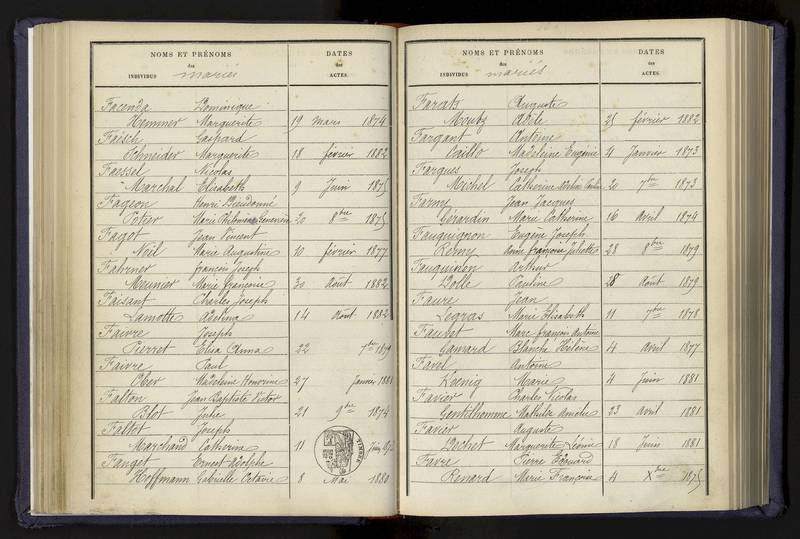 NOMS ET PRÉNOMS DATES
des des
INDIVIDUS mariés ACTES.
Facenda Dominique
Hemmer Marguerite 19 mars 1874
Faisch Gaspard
Schneider Marguerite 18 février 1882
Faessel Nicolas
Marchal Elisabeth 9 Juin 1875
Fageon Henri Dieudonné
Potier Marie Philomène Geneviève 20 8bre 1875
Fagot Jean Vincent
Noël Marie Augustine 10 février 1877
Fahrner françois Joseph
Meunier Marie françoise 30 Août 1882
Faisant Charles Joseph
Lamotte Adelina 14 Août 1882
Faivre Joseph
Pierret Elisa Anna 22 7bre 1879
Faivre Paul
Ober Madeleine Honorine 27 Janvier 1881
Falton Jean Baptiste Victor
Blot Julie 21 9bre 1874
Faltot Joseph
Marchand Catherine 11 Juin 1873
Fanget Ernest Adolphe
Hoffmann Gabrielle Octavie 8 Mai 1880
NOMS ET PRÉNOMS DATES
des des
INDIVIDUS mariés ACTES.
Farcatz Auguste
Moutz Adèle 25 février 1882
Fargant Antoine
Caillo Madeleine Eugénie 4 Janvier 1873
Fargues Joseph
Michel Catherine 20 7bre 1873
Farny Jean Jacques
Gérardin Marie Catherine 16 Avril 1874
Fauquignon Eugène Joseph
Remy Anne françoise Juliette 28 8bre 1879
Fauquinon Arthur
Dolle Pauline 28 Août 1879
Faure Jean
Legras Marie Elisabeth 11 7bre 1878
Faubet Marc françois Antoine
Gamard Blanche Hélène 4 Avril 1877
Favel Antoine
Koenig Marie 4 Juin 1881
Favier Charles Nicolas
Gentilhomme Mathilde Amélie 23 Avril 1881
Favier Auguste
Pechet Marguerite Léonie 18 Juin 1881
Favre Pierre Edouard
Renard Marie Françoise 4 Xbre 1875